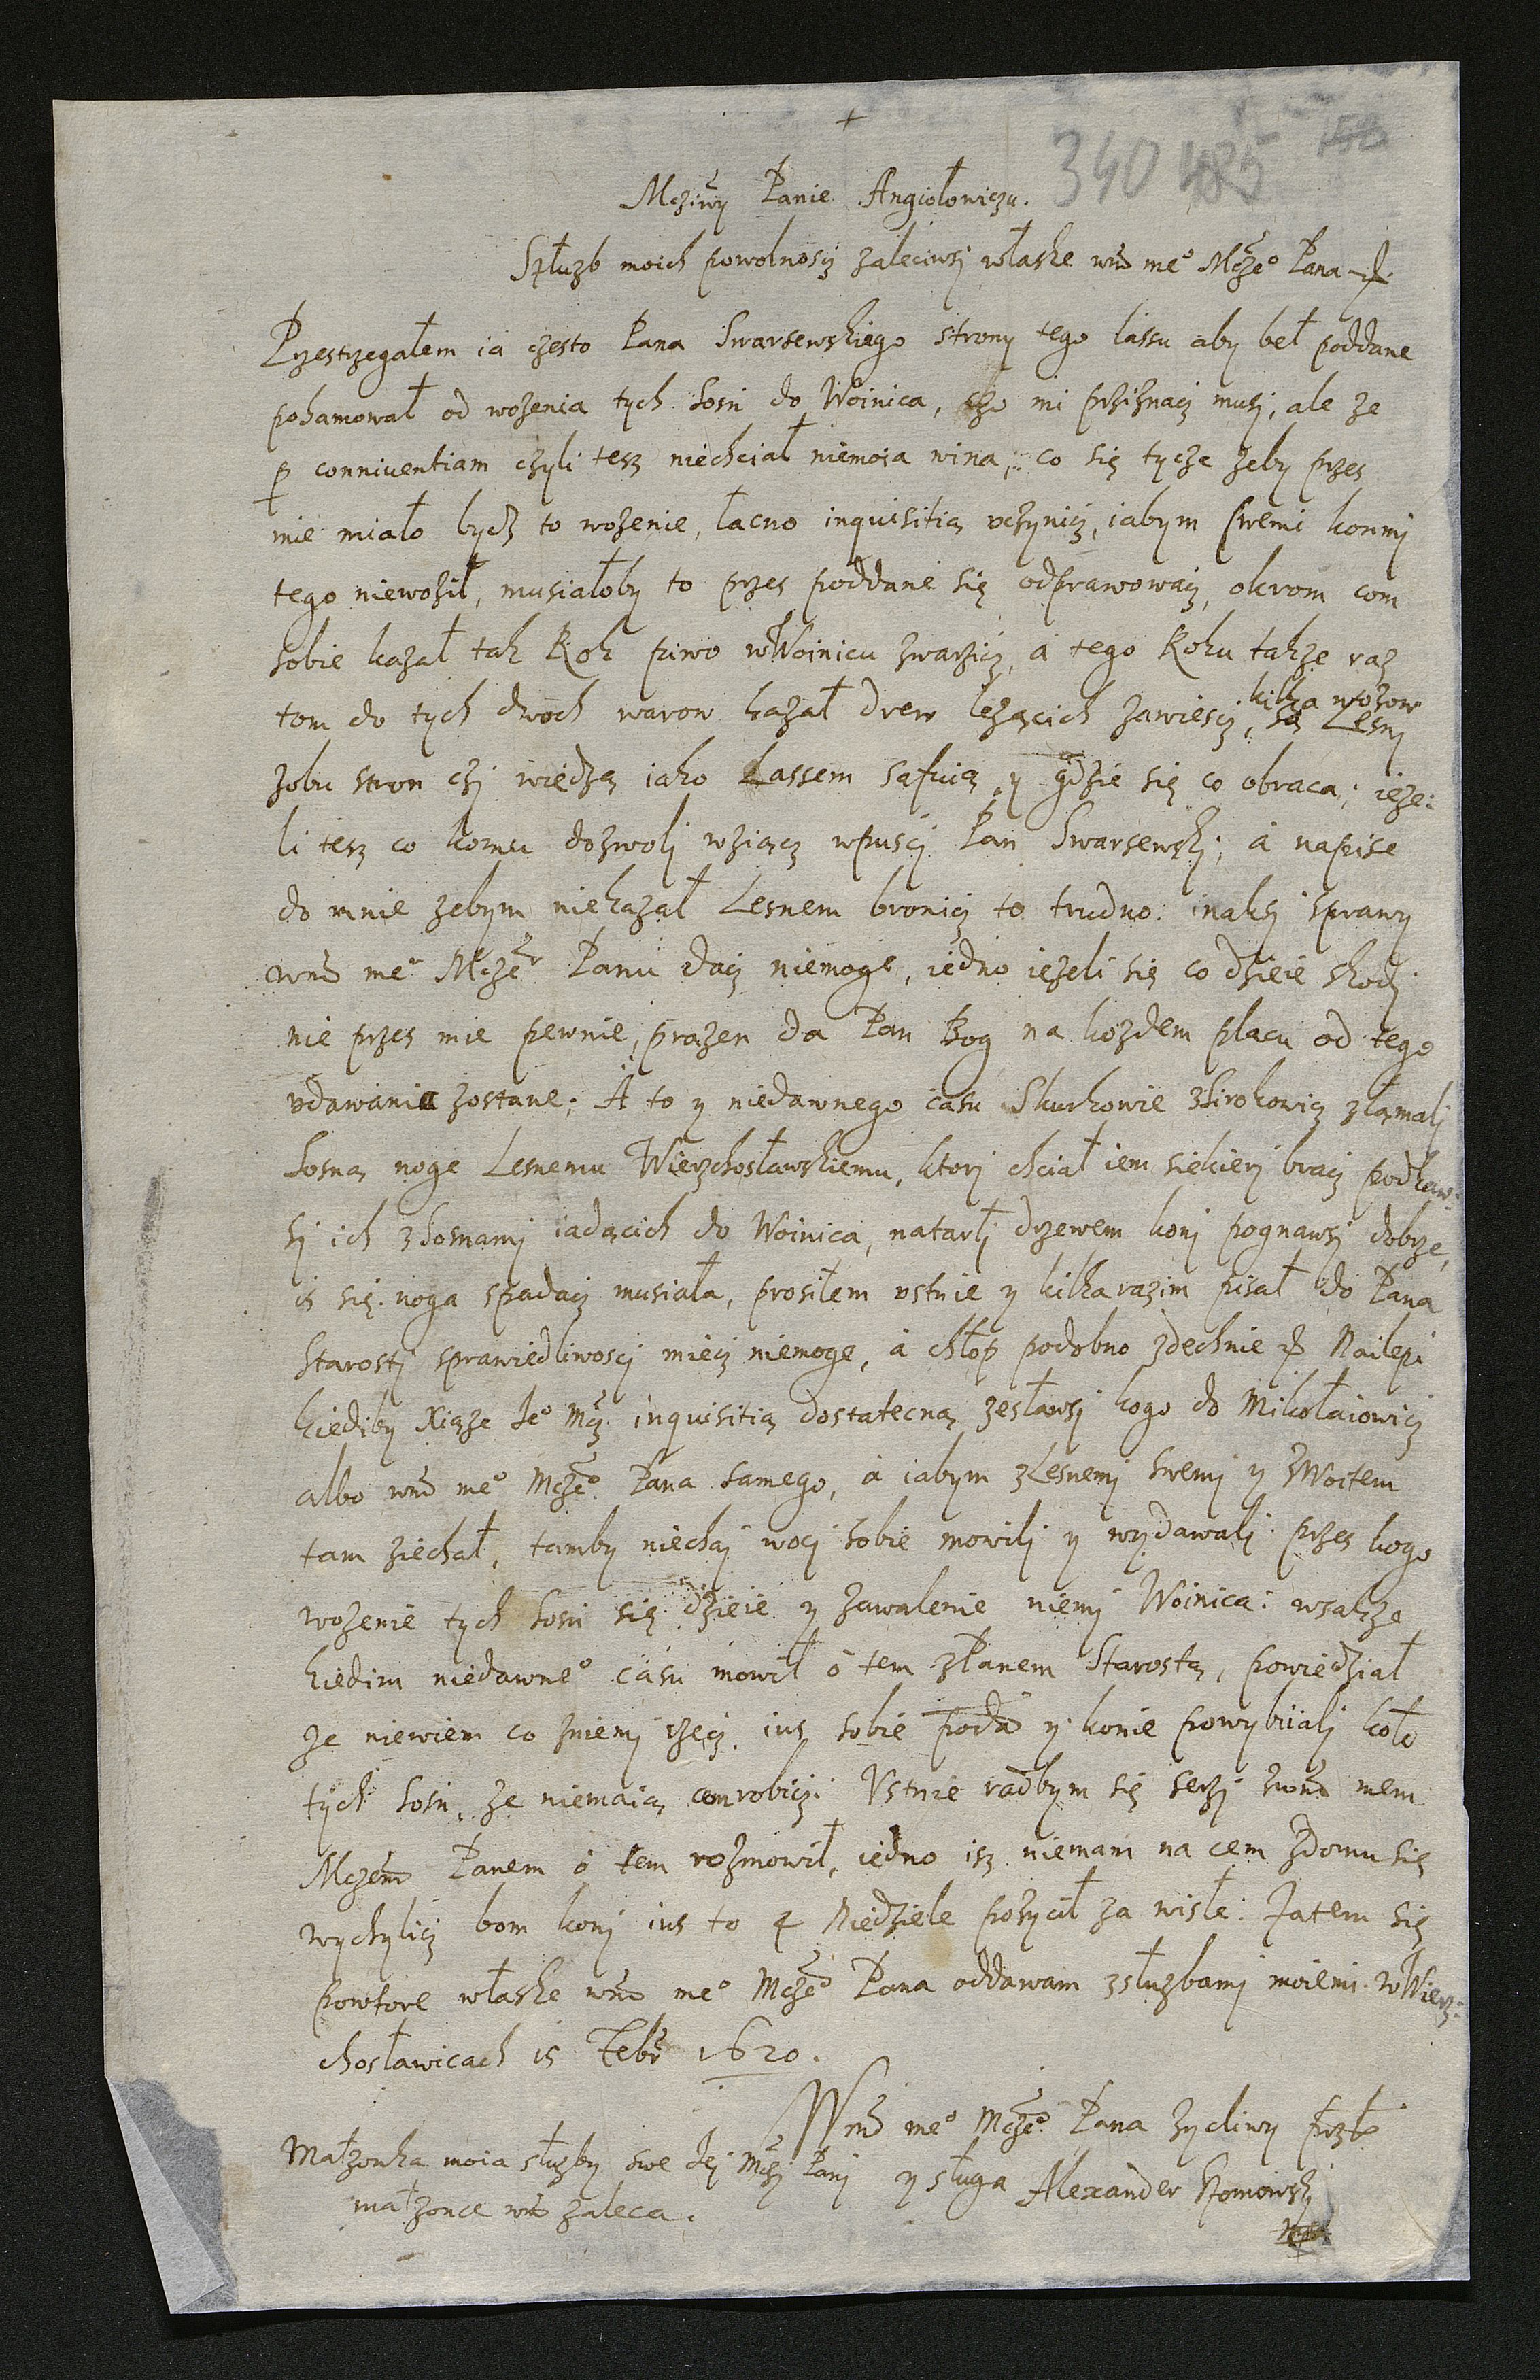 +
340 485 150
Mcziwy Panie Angiołowiczu.
Spłuzb moich powolnoscz zaleciwsy właske wm̃ me° Mcze° Pana
Przestrzegałem ia czesto Pana Swarsewskiego strony tego lassu aby beł poddane
pohamował od wozenia tych sosn do Woinica, czo mi przisnacz musj, ale ze
p conniventiam czyli tesz niechciał niemoia wina; co się tycze zeby przes
mie miało bydz to wozenie, łacno inquisitią uczynicz, iabym swemi konmj
tego niewoził, musiałoby to przes poddane się odprawowacz, okrom com
sobie kazał tak Rok piwo wWoinicu zwarzicz, a tego Roku takze raz
tom do tych dwoch warow kazał drew lezącich zawiescz, kilka wozow są Lesnj
zobu stron czj wiedzą iako Lassem safuią, y gdzie się co obraca; ieze:
li tesz co komu dozwolj wziącz wpuscj Pan Swarsewskj; á napise
do mnie zebym niekazał Lesnem bronicz to trudno: inaksj sprawy
wm̃ me° Mcze° Panu dacz niemoge, iedno iezeli się co dzieie skodj
nie przes mie pewnie, prazen da Pan Bog na kozdem placu od tego
udawania zostane; A to y niedawnego casu Skurkowie zSirokowicz złamalj
sosną noge Lesnemu Wierzchosławskiemu, ktorj chciał iem siekierj bracz podkaw:
sj ich zSosnamj iadącich do Woinica, natarlj drzewem konj pognawsj dobrze,
is się noga spadacz musiała, prosiłem ustnie y kilkarazim pisał do Pana
Starostj sprawiedliwoscj miecz niemoge, á chłop podobno zdechnie Nailepi
kiediby Xiąze Je° Mcz inquisitią dostatecną zesławsj kogo do Mikołaiowicz
albo wm̃ me° Mcze° Pana samego, á iabym zLesnemj swemj y zWoitem
tam ziechał, tamby niechaj wocj sobie mowilj y wydawalj przes kogo
wozenie tych sosn się dzieie y zawalenie niemj Woinica: wsakze
kiedim niedawne° casu mowił ó tem zPanem Starostą, powiedział
ze niewiem co zniemj rzecz, ius sobie podd y konie powybijalj koło
tych sosn, ze niemaią com robicz. Ustnie radbym się serzj zwm̃ mem
Mczem Panem ó tem rozmowił, iedno isz niemam na cem zdomu się
wychylicz bom konj ius to 4 Niedziele pozycił za wisłe: Zatem się
powtore właske wm̃ me° Mcze° Pana oddawam zsłuzbamj moiemi. wWierz:
chosławicach is Febr 1620.
Wm̃ me° Mcze° Pana zycliwy przł
y sługa Alexander
Małzonka moia słuzby swe Jej Mczj Panj
małzonce wm̃ zaleca.